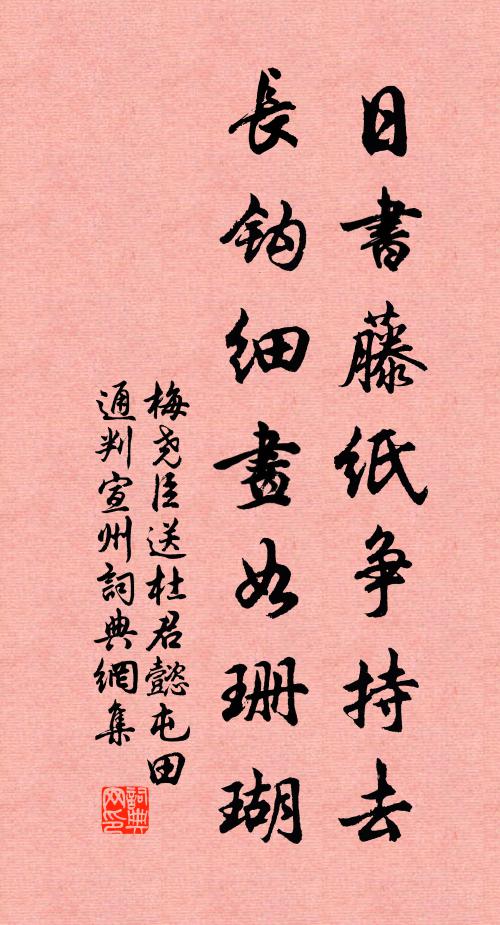 日書藤紙争持去
長鈎細畫如珊瑚
梅尧臣送杜君懿屯田
通判宣州詞典網集
詞典
网印